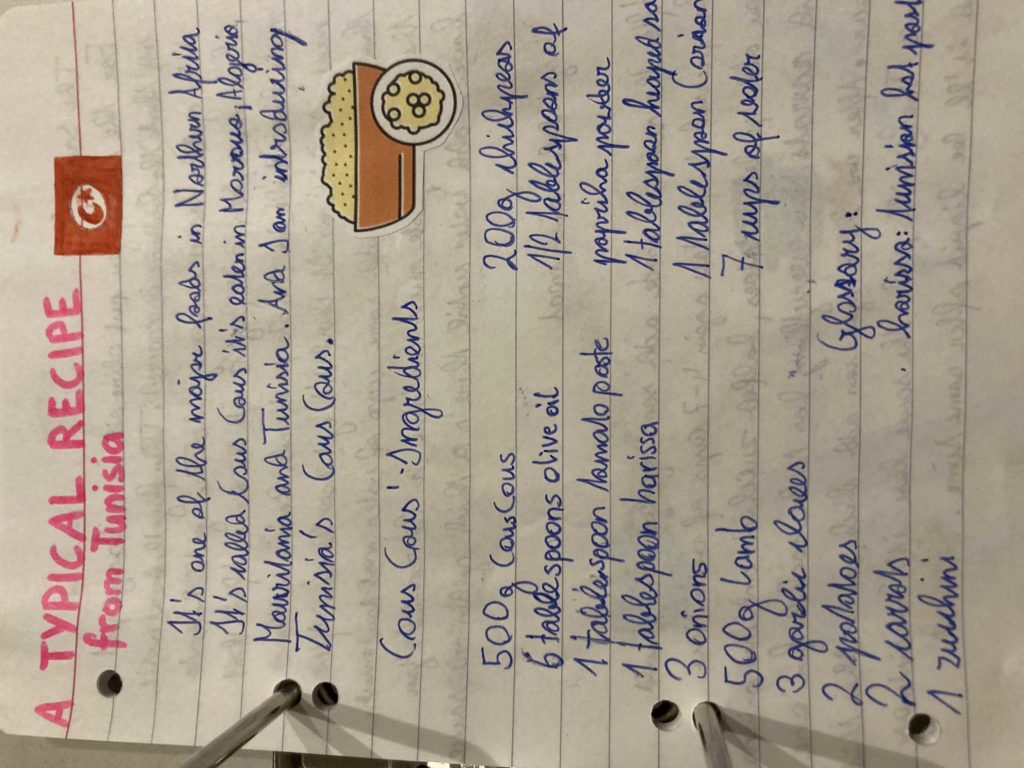 A TYPICAL RECIPE
from Tunisia
It's one of the major foods in Northern Africa
It's called Cous Cous it's eaten in Morocco, Algeria,
Mauritania and Tunisia. And I am introducing
Tunisia's Cous Cous.
Cous Cous' Ingredients
500g CousCous
6 tablespoons olive oil
1 tablespoon tomato paste
1 tablespoon harissa
3 onions
500g Lamb
3 garlic cloves
2 potatoes
2 carrots
1 zuchini
200g chikpeas
1/2 tablespoons of
paprika powder
1 tablespoon
1 tablespoon
7 cups of water
Glossary:
harissa: Tunisian hot